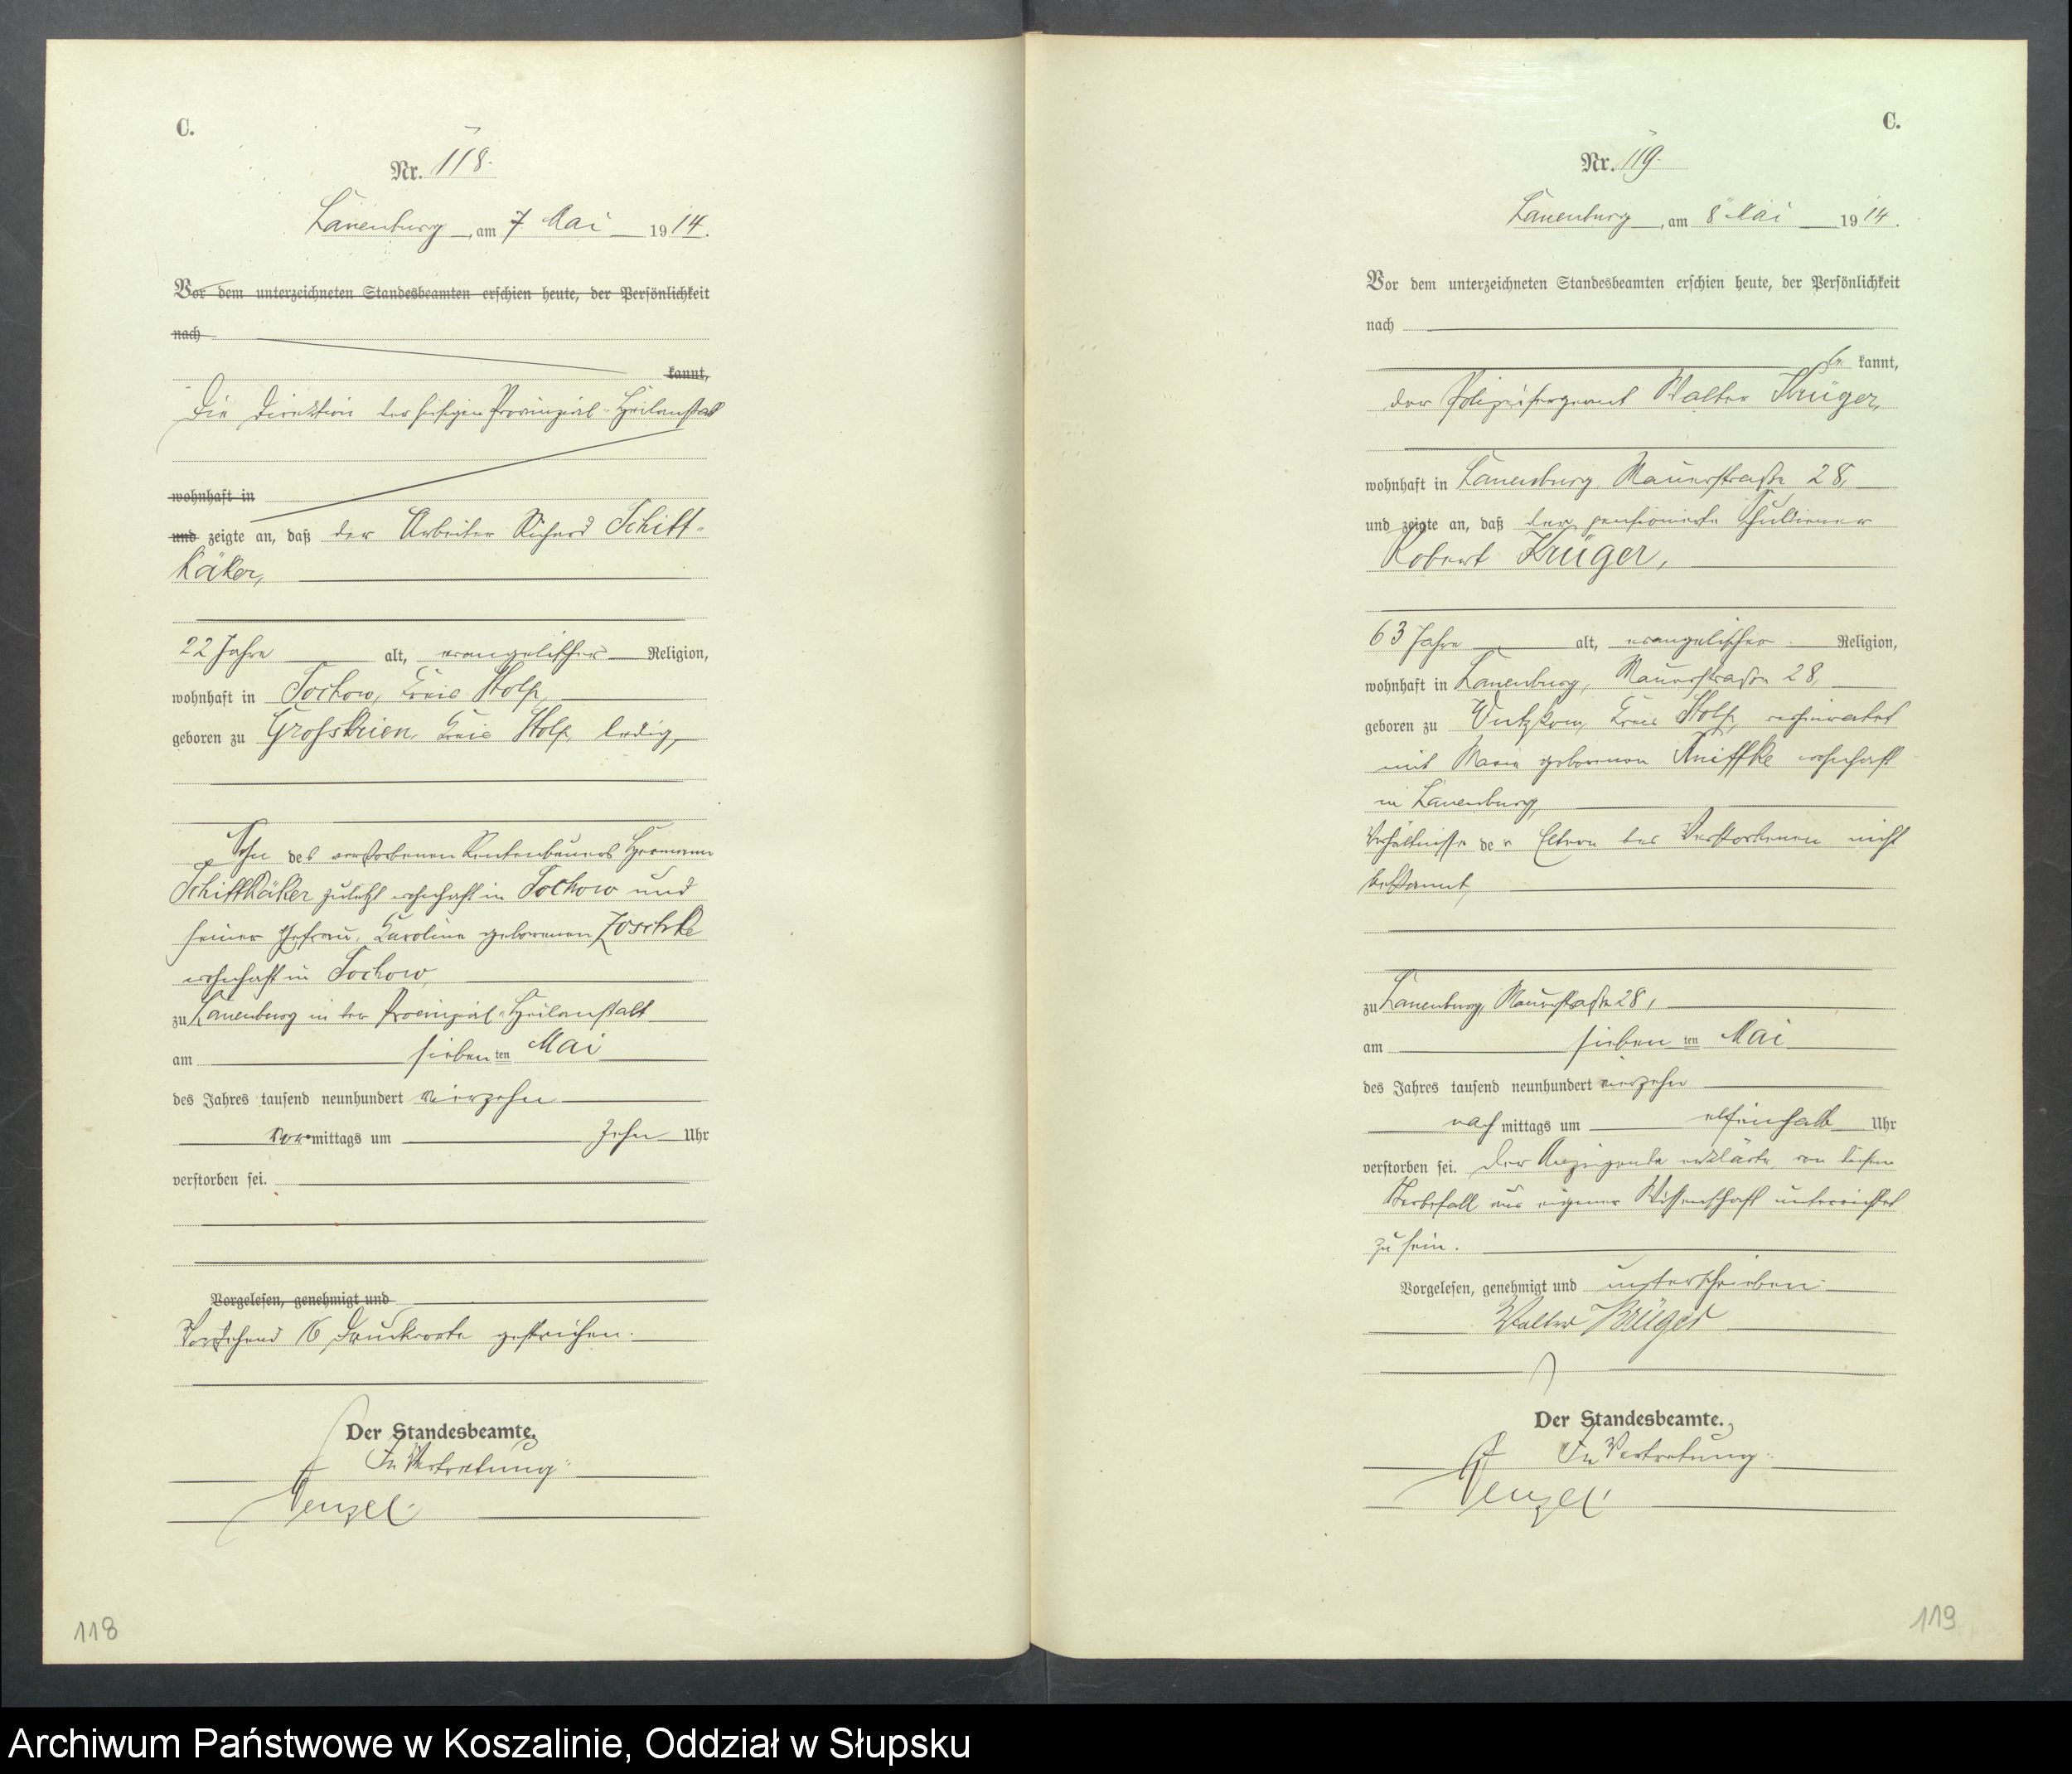 C.
Nr. 118.
Lauenburg, am 7 Mai 1914.
Vor dem unterzeichneten Standesbeamten erschien heute, der Persönlichkeit
nach
kannt,
Die Direktion der hiesigen Provinzial-Heilanstalt
wohnhaft in
und zeigte an, daß der Arbeiter Richard Schiff-
käker,
22 Jahre alt, evangelischer Religion,
wohnhaft in Sochow, Kreis Stolp,
geboren zu Grosskrien, Kreis Stolp, ledig,
Sohn des verstorbenen Rentenbauers Hermann
Schiffkäker zuletzt wohnhaft in Sochow und
seiner Ehefrau, Karoline geborenen Joschke
wohnhaft in Sochow,
zu Lauenburg in der Provinzial-Heilanstalt
am siebenten Mai
des Jahres tausend neunhundert vierzehn
vormittags um zehn Uhr
verstorben sei.
Vorgelesen, genehmigt und
Vorstehend 16 Druckworte gestrichen.
Der Standesbeamte.
In Vertretung:
Wenzel.
118
C.
Nr. 119.
Lauenburg, am 8 Mai 1914.
Vor dem unterzeichneten Standesbeamten erschien heute, der Persönlichkeit
nach
be kannt,
der Polizeisergeant Walter Krüger,
wohnhaft in Lauenburg, Mauerstraße 28,
und zeigte an, daß der pensionierte Schuldiener
Robert Krüger,
63 Jahre alt, evangelischer Religion,
wohnhaft in Lauenburg, Mauerstraße 28,
geboren zu Wutzkow, Kreis Stolp, verheiratet
mit Marie geborenen Kniffke wohnhaft
in Lauenburg,
Verhältnisse der Eltern des Verstorbenen nicht
bekannt,
zu Lauenburg, Mauerstraße 28,
am siebenten Mai
des Jahres tausend neunhundert vierzehn
nachmittags um elfeinhalb Uhr
verstorben sei. Der Anzeigende erklärte, von diesem
Sterbefall aus eigener Wissenschaft unterrichtet
zu sein.
Vorgelesen, genehmigt und unterschrieben
Walter Krüger
Der Standesbeamte.
In Vertretung:
Wenzel.
119
Archiwum Państwowe w Koszalinie, Oddział w Słupsku